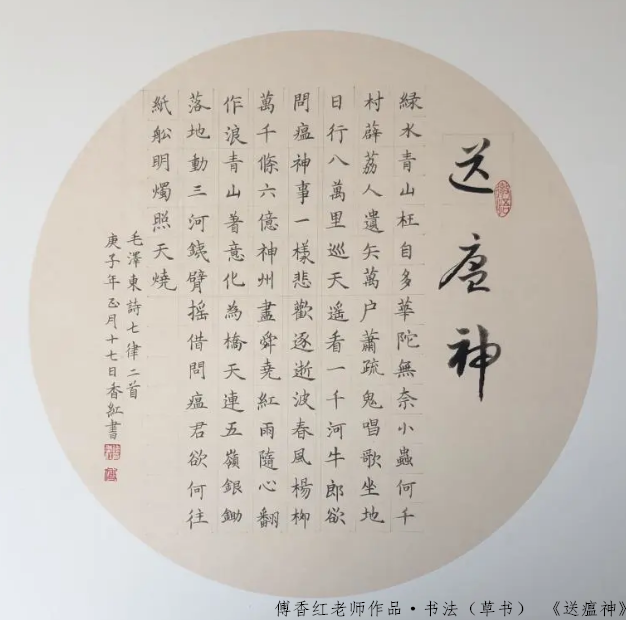 送瘟神
緑水青山枉自多華陀無奈小蟲何千
村薜荔人遺矢萬户蕭疏鬼唱歌坐地
日行八萬里巡天遥看一千河牛郎欲
問瘟神事一樣悲歡逐逝波春風楊柳
萬千條六億神州盡舜堯紅雨隨心翻
作浪青山著意化為橋天連五嶺銀鋤
落地動三河鐵臂摇借問瘟君欲何往
紙船明燭照天燒
毛澤東詩七律二首
庚子年正月十七日香紅書
傅香红老师作品·书法（草书） 《送瘟神》